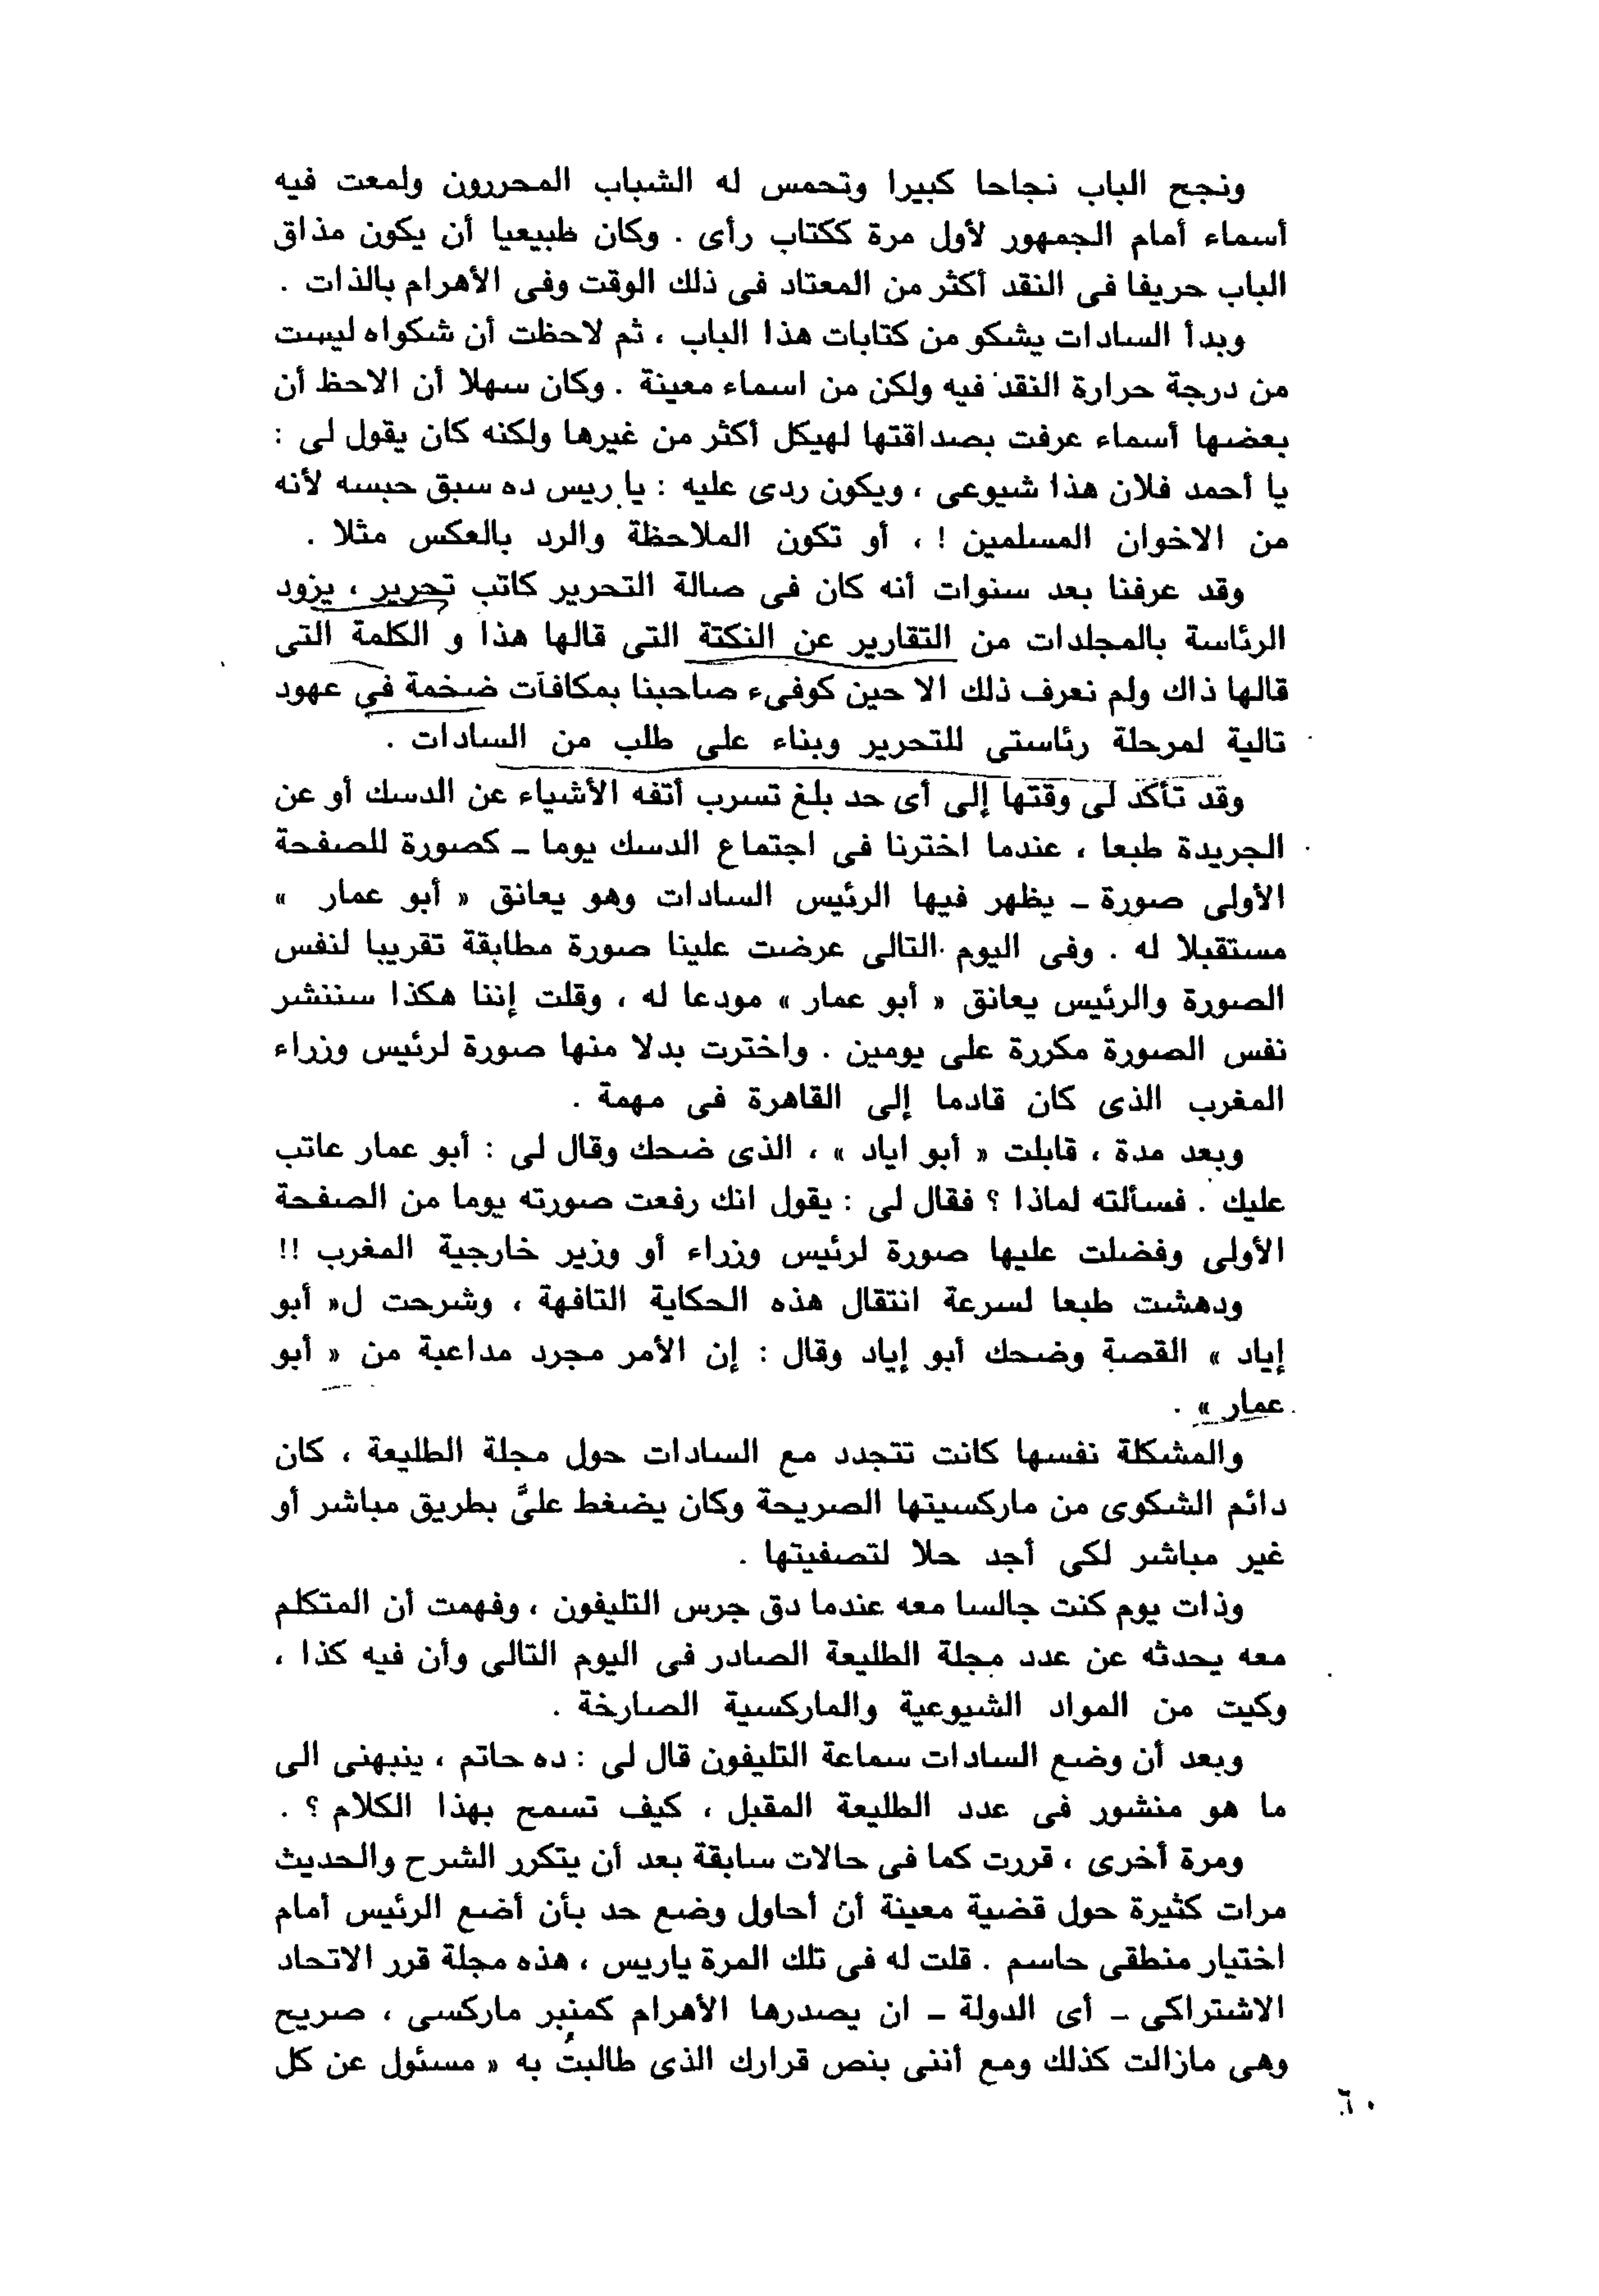 ونجح الباب نجاحا كبيرا وتحمس له الشباب المحررون ولمعت فيه
أسماء أمام الجمهور لأول مرة ككتاب رأى . وكان طبيعيا أن يكون مذاق
الباب حريفا فى النقد أكثر من المعتاد فى ذلك الوقت وفى الأهرام بالذات .
وبدأ السادات يشكو من كتابات هذا الباب ، ثم لاحظت أن شكواه ليست
من درجة حرارة النقد فيه ولكن من اسماء معينة . وكان سهلا أن الاحظ أن
بعضها أسماء عرفت بصداقتها لهيكل أكثر من غيرها ولكنه كان يقول لى :
يا أحمد فلان هذا شيوعى ، ويكون ردى عليه : يا ريس ده سبق حبسه لأنه
من الاخوان المسلمين ! ، أو تكون الملاحظة والرد بالعكس مثلا .
وقد عرفنا بعد سنوات أنه كان فى صالة التحرير كاتب تحرير ، يزود
الرئاسة بالمجلدات من التقارير عن النكتة التى قالها هذا و الكلمة التى
قالها ذاك ولم نعرف ذلك الا حين كوفىء صاحبنا بمكافآت ضخمة فى عهود
تالية لمرحلة رئاستى للتحرير وبناء على طلب من السادات .
وقد تأكد لى وقتها إلى أى حد بلغ تسرب أتفه الأشياء عن الدسك أو عن
الجريدة طبعا ، عندما اخترنا فى اجتماع الدسك يوما ـ كصورة للصفحة
الأولى صورة ـ يظهر فيها الرئيس السادات وهو يعانق « أبو عمار »
مستقبلا له . وفى اليوم التالى عرضت علينا صورة مطابقة تقريبا لنفس
الصورة والرئيس يعانق « أبو عمار » مودعا له ، وقلت إننا هكذا سننشر
نفس الصورة مكررة على يومين . واخترت بدلا منها صورة لرئيس وزراء
المغرب الذى كان قادما إلى القاهرة فى مهمة .
وبعد مدة ، قابلت « أبو اياد » ، الذى ضحك وقال لى : أبو عمار عاتب
عليك . فسألته لماذا ؟ فقال لى : يقول انك رفعت صورته يوما من الصفحة
الأولى وفضلت عليها صورة لرئيس وزراء أو وزير خارجية المغرب !!
ودهشت طبعا لسرعة انتقال هذه الحكاية التافهة ، وشرحت ل« أبو
إياد » القصة وضحك أبو إياد وقال : إن الأمر مجرد مداعبة من « أبو
عمار » .
والمشكلة نفسها كانت تتجدد مع السادات حول مجلة الطليعة ، كان
دائم الشكوى من ماركسيتها الصريحة وكان يضغط علىَّ بطريق مباشر أو
غير مباشر لكى أجد حلا لتصفيتها .
وذات يوم كنت جالسا معه عندما دق جرس التليفون ، وفهمت أن المتكلم
معه يحدثه عن عدد مجلة الطليعة الصادر فى اليوم التالى وأن فيه كذا ،
وكيت من المواد الشيوعية والماركسية الصارخة .
وبعد أن وضع السادات سماعة التليفون قال لى : ده حاتم ، ينبهنى الى
ما هو منشور فى عدد الطليعة المقبل ، كيف تسمح بهذا الكلام ؟ .
ومرة أخرى ، قررت كما فى حالات سابقة بعد أن يتكرر الشرح والحديث
مرات كثيرة حول قضية معينة أن أحاول وضع حد بأن أضع الرئيس أمام
اختيار منطقى حاسم . قلت له فى تلك المرة ياريس ، هذه مجلة قرر الاتحاد
الاشتراكى ـ أى الدولة ـ ان يصدرها الأهرام كمنبر ماركسى ، صريح
وهى مازالت كذلك ومع أننى بنص قرارك الذى طالبتُ به « مسئول عن كل
٦٠